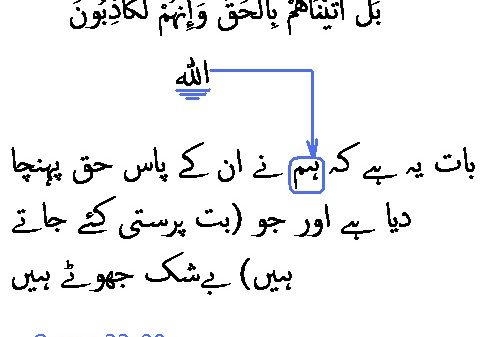 بَلْ أَتَيْنَاهُمْ بِالْحَقِّ وَإِنَّهُمْ لَكَاذِبُونَ
الله
بات یہ ہے کہ ہم نے ان کے پاس حق پہنچا
دیا ہے اور جو (بت پرستی کئے جاتے
ہیں) بےشک جھوٹے ہیں